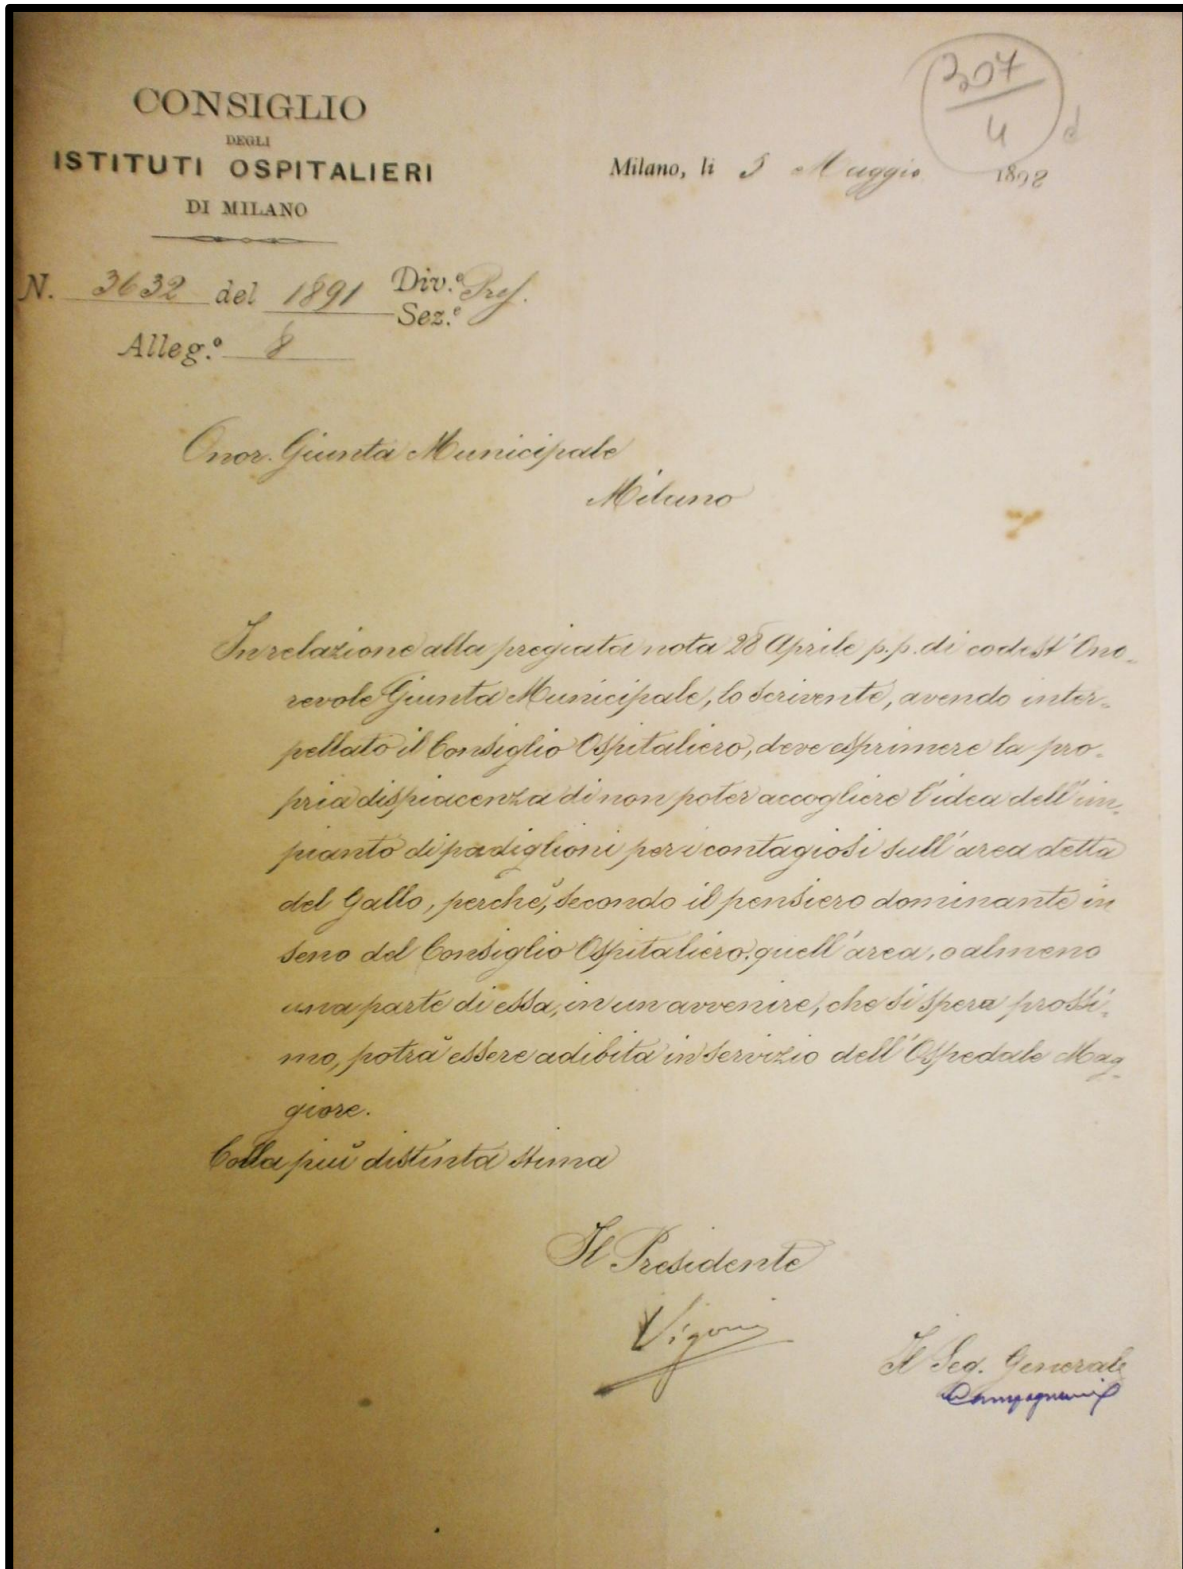 307
4
d
CONSIGLIO
DEGLI
ISTITUTI OSPITALIERI
DI MILANO
Milano, li 5 Maggio 1892
N. 3632 del 1891 Div.e Pres.
Sez.e
Alleg.o 8
Onor. Giunta Municipale
Milano
In relazione alla pregiata nota 28 Aprile p.p. di codest' Ono-
revole Giunta Municipale, lo scrivente, avendo inter-
pellato il Consiglio Ospitaliero, deve esprimere la pro-
pria dispiacenza di non poter accogliere l'idea dell'im-
pianto di padiglioni per i contagiosi sull'area detta
del Gallo, perchè, secondo il pensiero dominante in
seno del Consiglio Ospitaliero, quell'area, o almeno
una parte di essa, in un avvenire, che si spera prossi-
mo, potrà essere adibita in servizio dell'Ospedale Mag-
giore.
Colla più distinta stima
Il Presidente
Vigoni
Il Seg. Generale